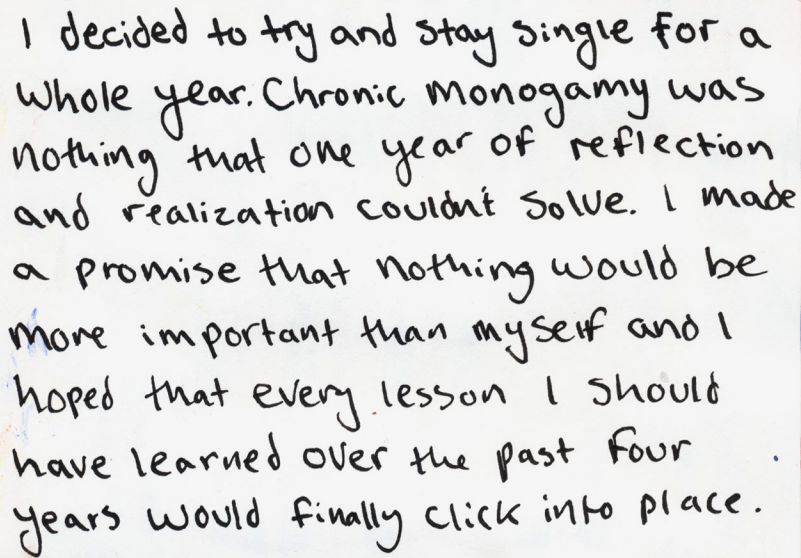 I decided to try and stay single for a
whole year. Chronic monogamy was
nothing that one year of reflection
and realization couldn't solve. I made
a promise that nothing would be
more important than myself and I
hoped that every lesson I should
have learned over the past four
years would finally click into place.